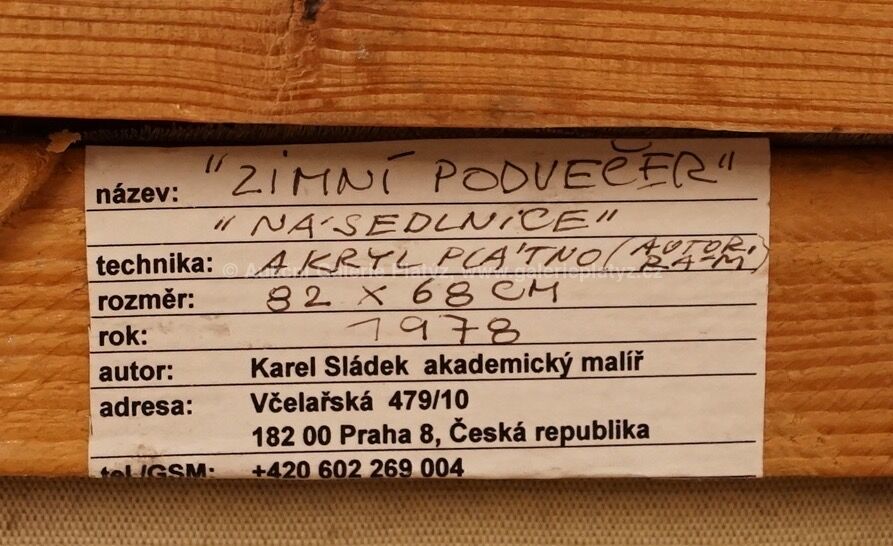 název: "ZIMNÍ PODVEČER"
"NÁSEDLNICE"
technika: AKRYL PLÁTNO (AUTOR. RÁM)
rozměr: 82 x 68 CM
rok: 1978
autor: Karel Sládek akademický malíř
adresa: Včelařská 479/10
182 00 Praha 8, Česká republika
tel./GSM: +420 602 269 004
© Aukční Galerie Platýz, www.galerieplatyz.cz